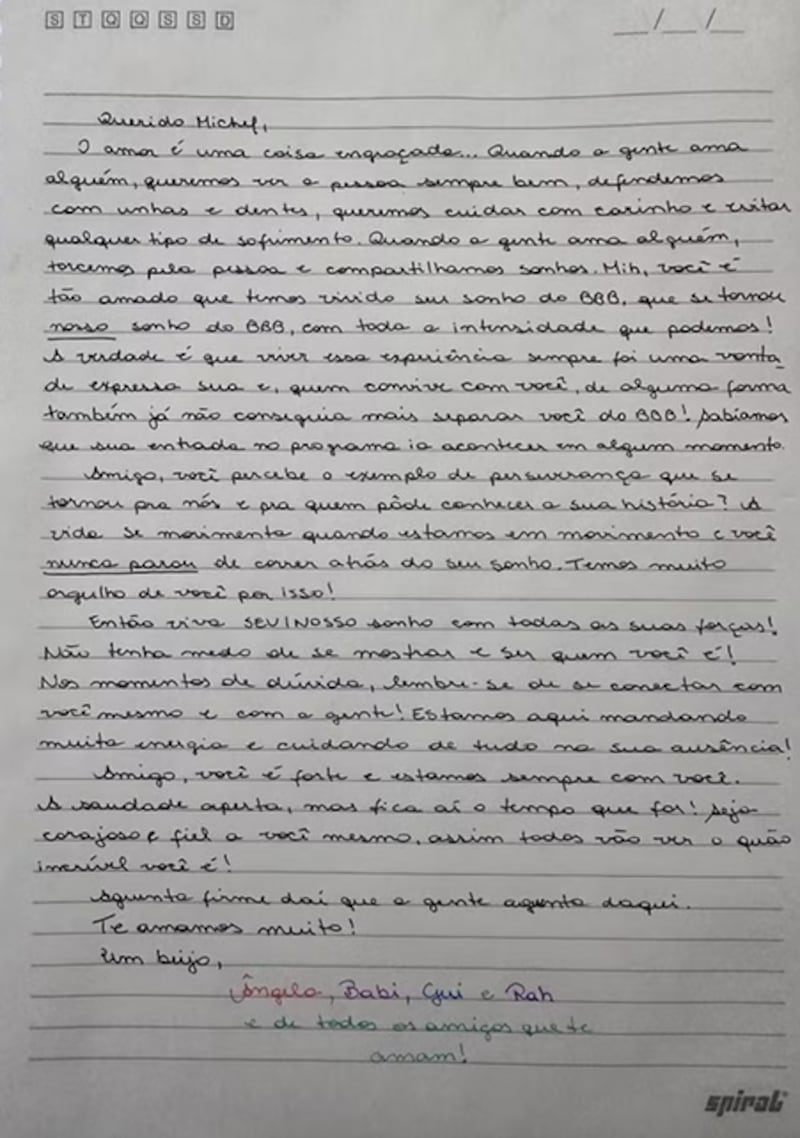 S T Q Q S S D __/__/__
Querido Michel,
O amor é uma coisa engraçada... Quando a gente ama
alguém, queremos ver a pessoa sempre bem, defendemos
com unhas e dentes, queremos cuidar com carinho e evitar
qualquer tipo de sofrimento. Quando a gente ama alguém,
torcemos pela pessoa e compartilhamos sonhos. Mih, você é
tão amado que temos vivido seu sonho do BBB, que se tornou
nosso sonho do BBB, com toda a intensidade que podemos!
A verdade é que viver essa experiência sempre foi uma vonta_
de expressa sua e, quem convive com você, de alguma forma
também já não conseguia mais separar você do BBB! Sabíamos
que sua entrada no programa ia acontecer em algum momento.
Amigo, você percebe o exemplo de perseverança que se
tornou pra nós e pra quem pôde conhecer a sua história? A
vida se movimenta quando estamos em movimento e você
nunca parou de correr atrás do seu sonho. Temos muito
orgulho de você por isso!
Então viva SEU/NOSSO sonho com todas as suas forças!
Não tenha medo de se mostrar e ser quem você é!
Nos momentos de dúvida, lembre-se de se conectar com
você mesmo e com a gente! Estamos aqui mandando
muita energia e cuidando de tudo na sua ausência!
Amigo, você é forte e estamos sempre com você.
A saudade aperta, mas fica aí o tempo que for! Seja
corajoso e fiel a você mesmo, assim todos vão ver o quão
incrível você é!
Aguenta firme daí que a gente aguenta daqui.
Te amamos muito!
Um beijo,
Ângela, Babi, Gui e Rah
e de todos os amigos que te
amam!
spiral